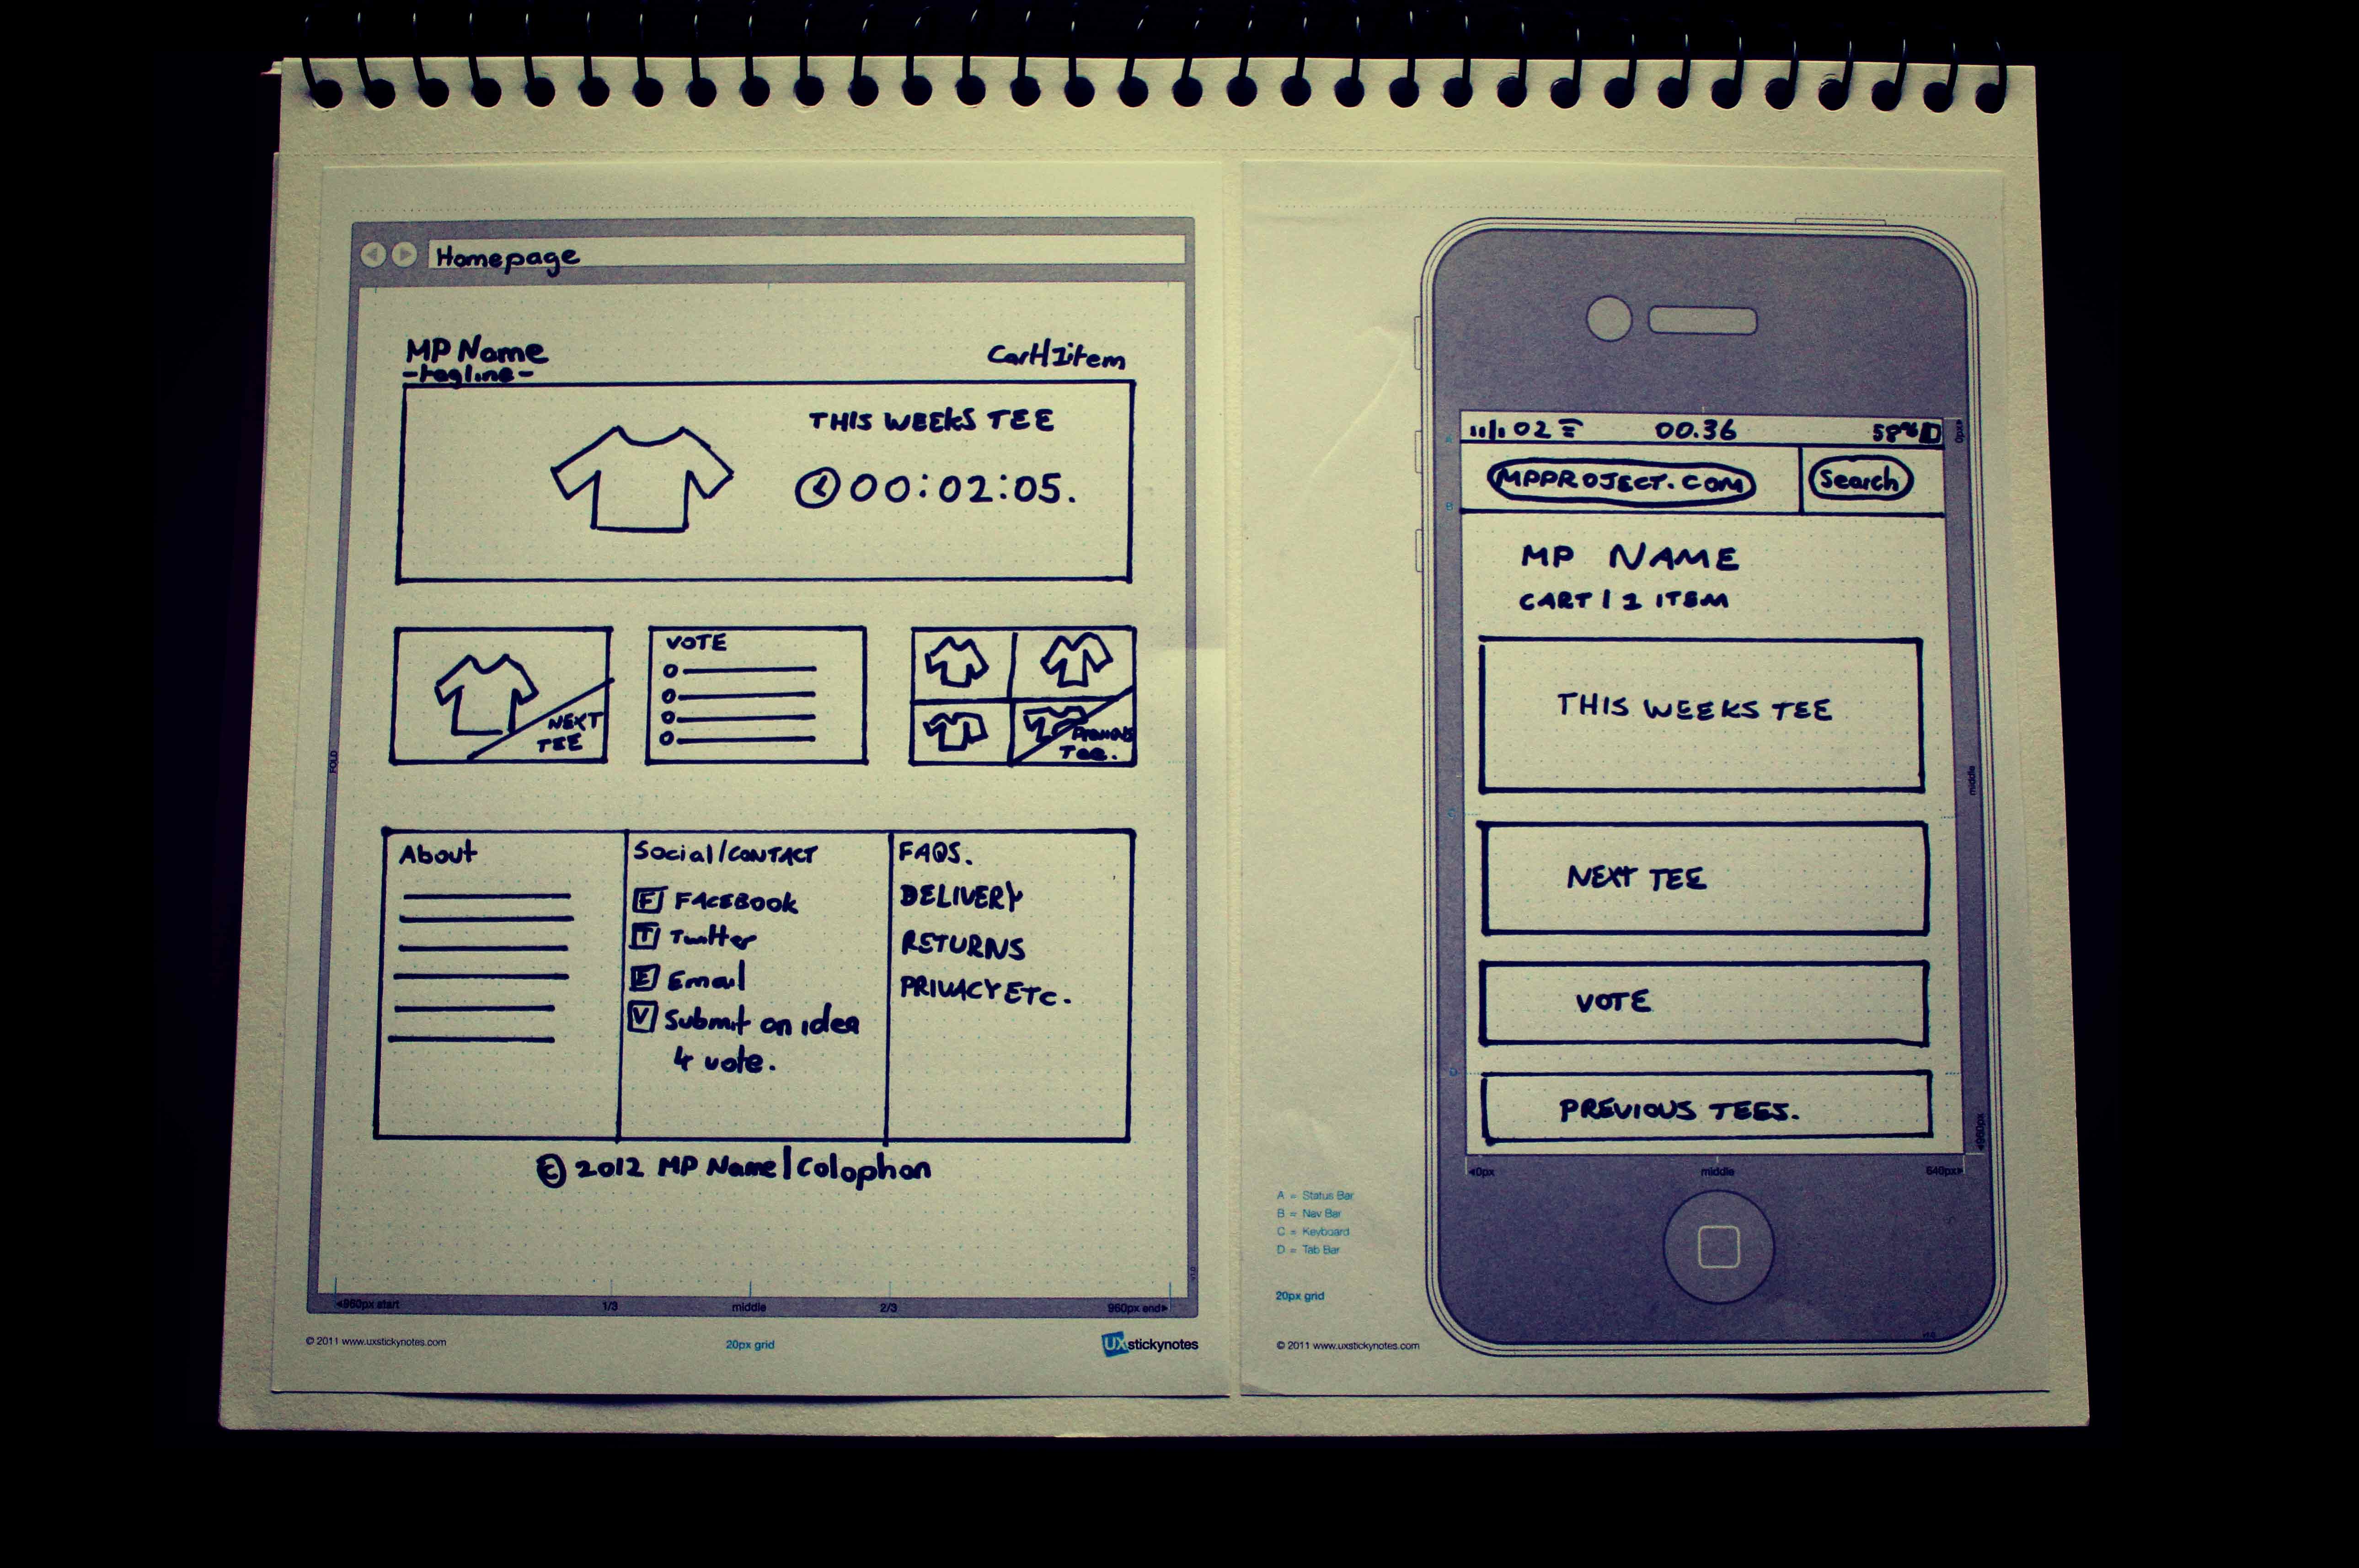 Homepage
MP Name
-tagline-
Cart|1item
THIS WEEKS TEE
00:02:05.
NEXT
TEE
VOTE
Previous
Tee.
About
Social/CONTACT
F FACEBOOK
T Twitter
E Email
V Submit an idea
4 vote.
FAQS.
DELIVERY
RETURNS
PRIVACY ETC.
© 2012 MP Name|Colophon
FOLD
v1.0
960px start
1/3
middle
2/3
960px end
© 2011 www.uxstickynotes.com
20px grid
UXstickynotes
02
00.36
58%
MPPROJECT.COM
Search
MP NAME
CART | 1 ITEM
THIS WEEKS TEE
NEXT TEE
VOTE
PREVIOUS TEES.
A
B
C
D
0px
middle
960px
0px
middle
640px
A = Status Bar
B = Nav Bar
C = Keyboard
D = Tab Bar
20px grid
© 2011 www.uxstickynotes.com
v1.0